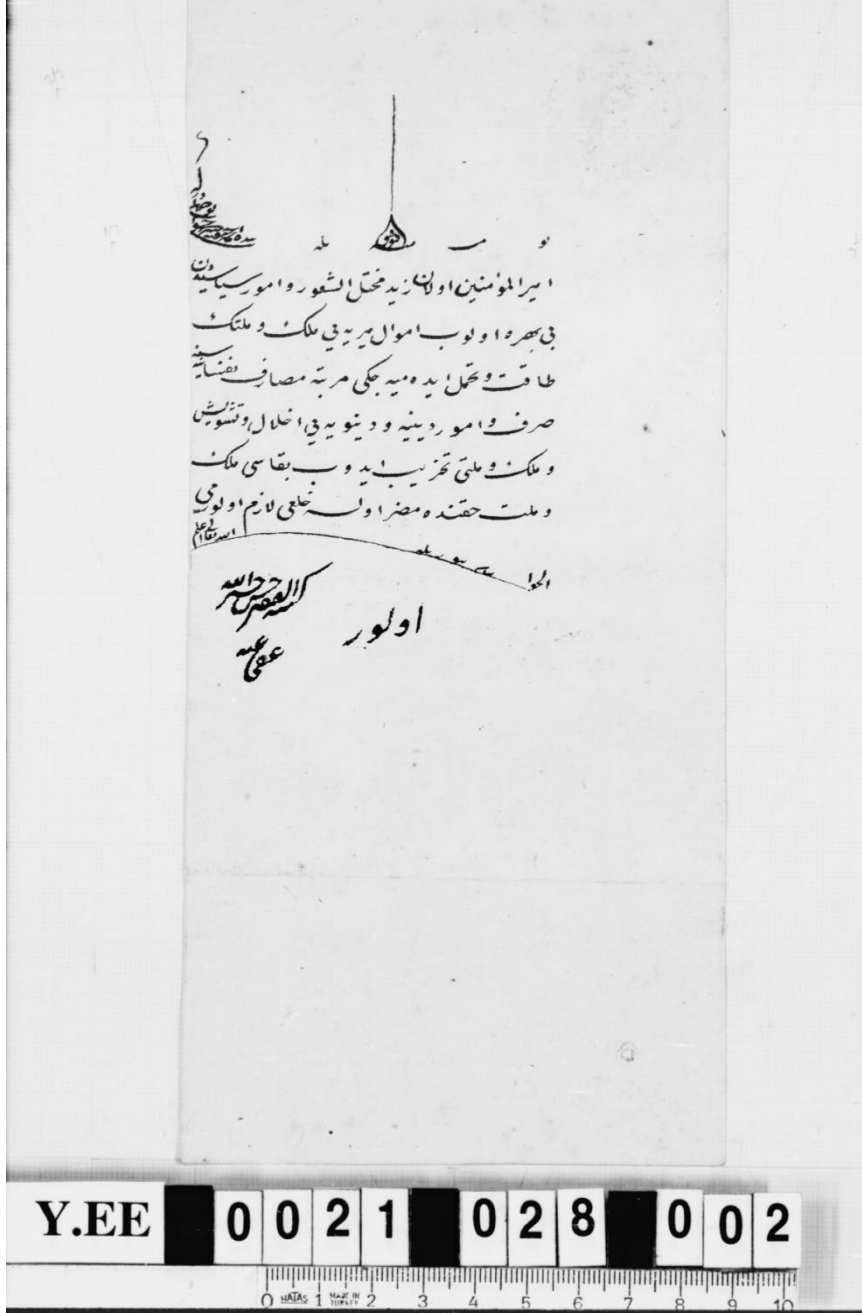 امير المؤمنين اولان زيد مختل الشعور و امور سياسيه‌دن
بى بهره اولوب اموال ميريه يى ملك و ملتك
طاقت و تحمل ايده‌ميه‌جكى مرتبه مصارف نفسانيه سنه
صرف و امور دينيه و دنيويه يى اخلال و تشويش
و ملك و ملتى تخريب ايدوب بقاسى ملك
و ملت حقنده مضر اولسه خلعى لازم اولورمى
الله تعالى اعلم
الجواب
اولور
كتبه الفقير حسن خير الله
عفى عنه
Y.EE 0021 028 002
0 HATAS 1 MADE IN TURKEY 2 3 4 5 6 7 8 9 10